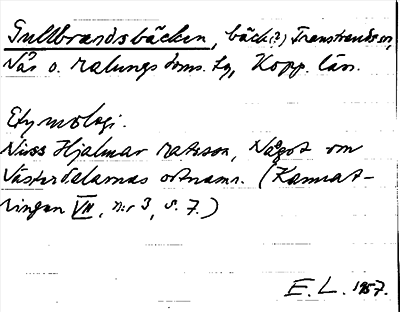 Gullbrandsbäcken, bäck(?) Transtrands sn,
Nås o. Malungs doms. lg, Kopp. län.
Etymologi.
Niss Hjalmar Matsson, Något om
Västerdalarnas ortnamn. (Kamrat-
ringen VII, nr 3, s. 7.)
E. L. 1957.